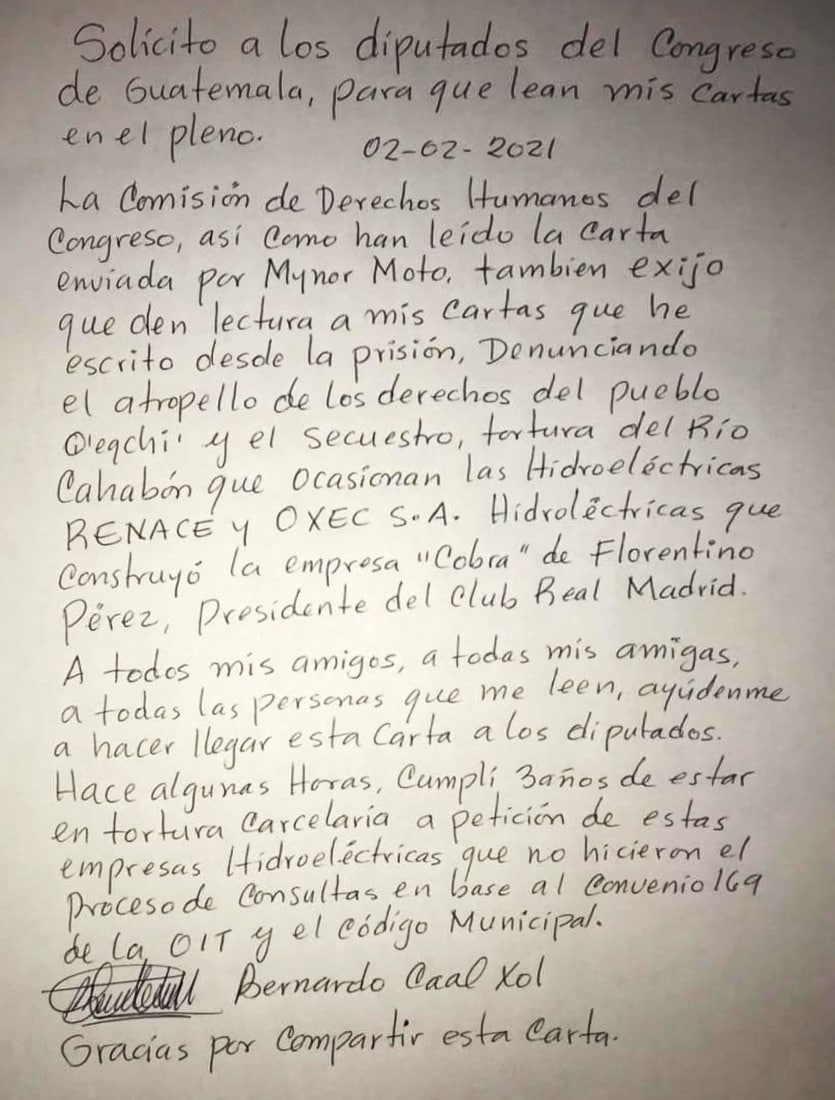 Solicito a los diputados del Congreso
de Guatemala, para que lean mis Cartas
en el pleno.
02-02-2021
La Comisión de Derechos Humanos del
Congreso, así Como han leído la Carta
enviada por Mynor Moto, tambien exijo
que den lectura a mis Cartas que he
escrito desde la prisión, Denunciando
el atropello de los derechos del pueblo
Q'eqchi' y el Secuestro, tortura del Río
Cahabón que Ocasionan las Hidroeléctricas
RENACE y OXEC S.A. Hidroléctricas que
Construyó la empresa "Cobra" de Florentino
Pérez, Presidente del Club Real Madrid.
A todos mis amigos, a todas mis amigas,
a todas las personas que me leen, ayúdenme
a hacer llegar esta Carta a los diputados.
Hace algunas Horas, Cumplí 3años de estar
en tortura Carcelaria a petición de estas
empresas Hidroeléctricas que no hicieron el
Proceso de Consultas en base al Convenio 169
de la OIT y el Código Municipal.
Bernardo Caal Xol
Gracias por Compartir esta Carta.